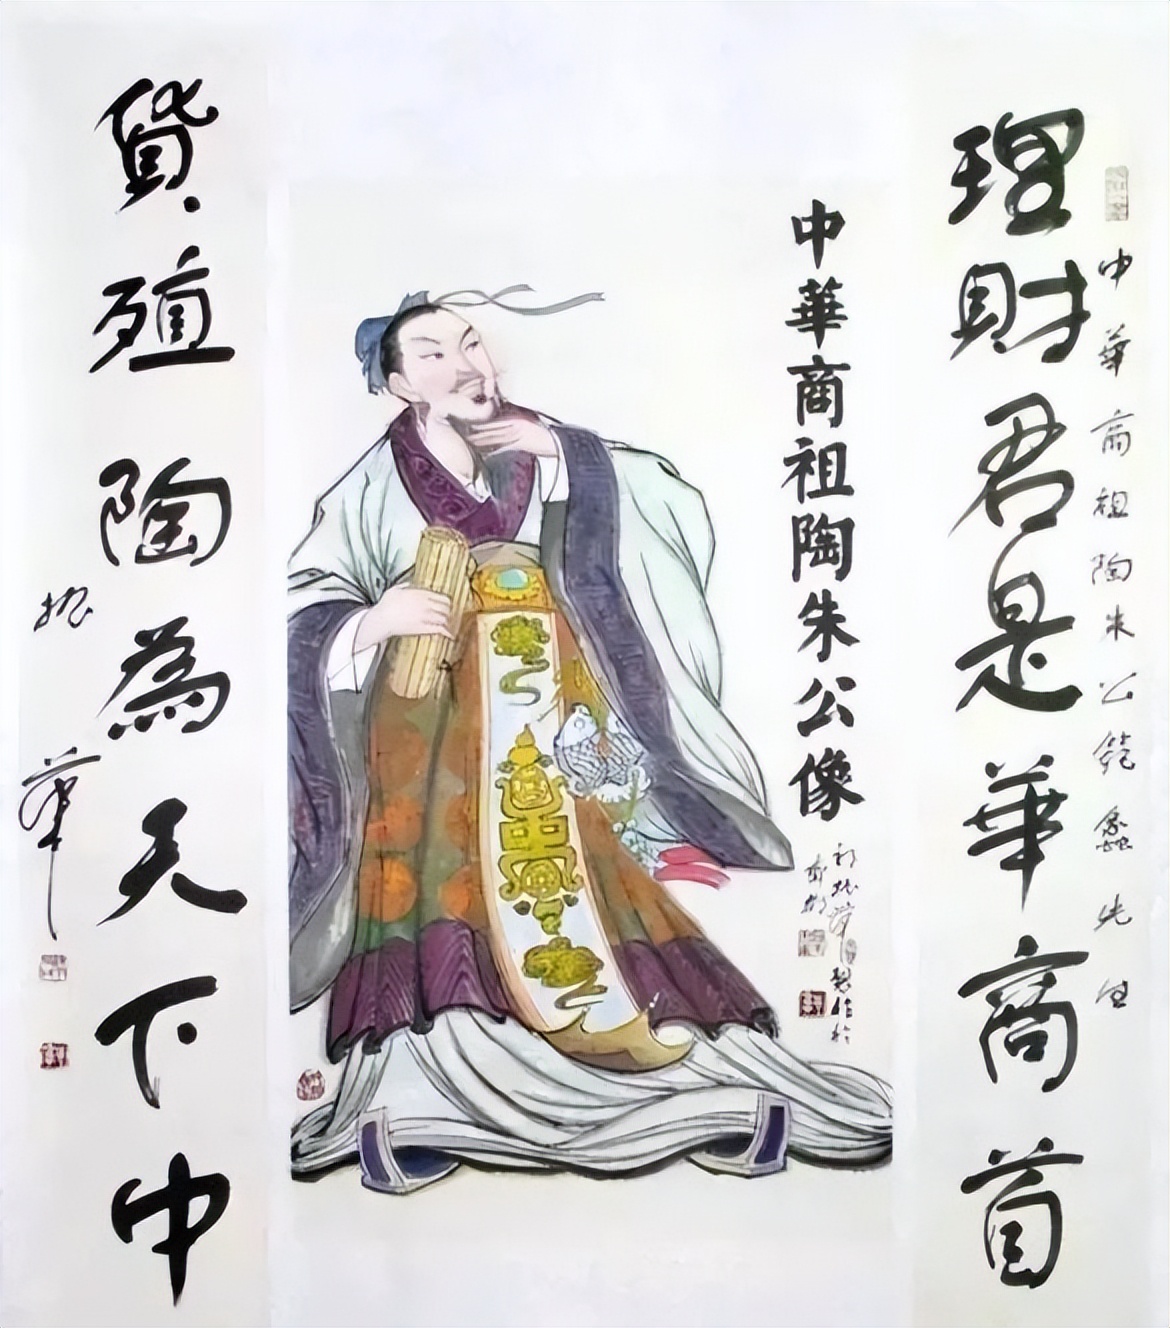 中華商祖陶朱公範蠡先生
理財君是華商首
中華商祖陶朱公像
貨殖陶為天下中